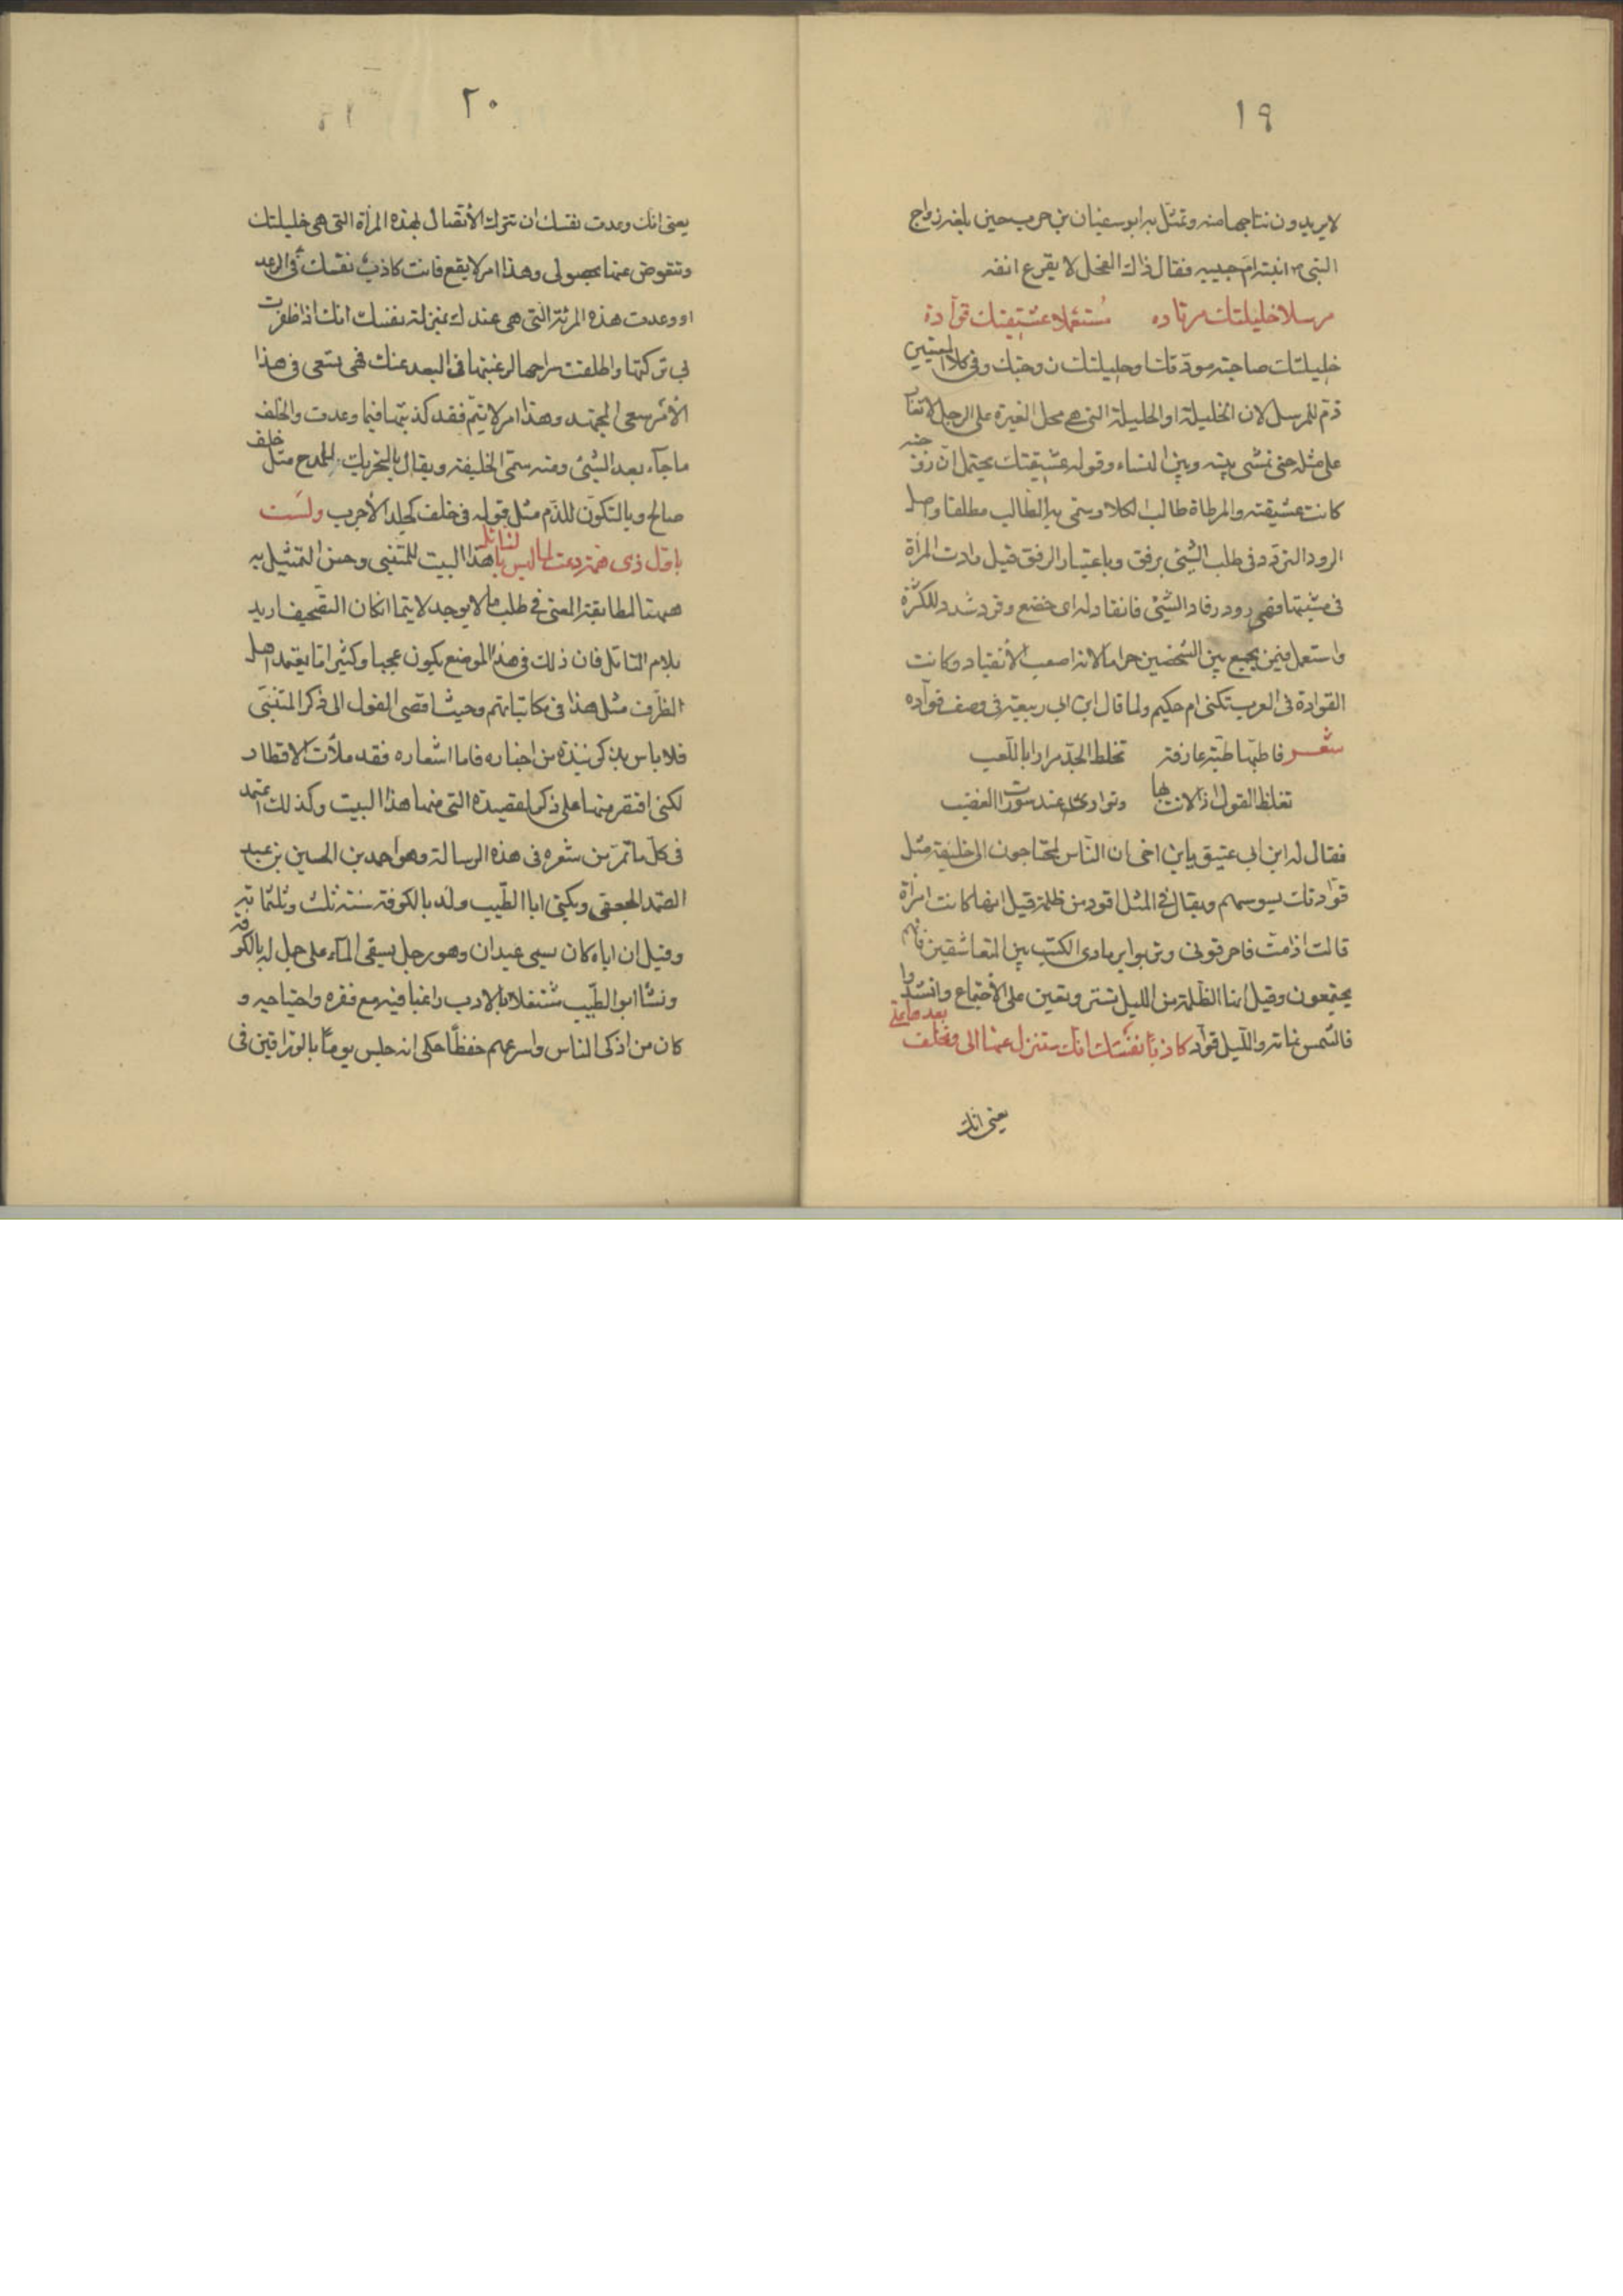 ١٩
لا يريدون نتاجها منه وتمثل به ابو سفيان بن حرب حين بلغه زواج
النبى م ابنته ام حبيبه فقال ذاك الفحل لا يقرع انفه
مرسلا خليلتك مرتاده مستعملا عشيقتك قوادة
خليلتك صاحبة مودتك وحليلتك زوجتك وفى كلا المعنيين
ذم للمرسل لان الخليلة او الحليلة التى هى محل الغيرة على الرجل لا
على مثله حتى تمشى بينه وبين النساء وقوله عشيقتك يحتمل ان زوجته
كانت عشيقته والمرطاة طالب الكلا ويسمى به الطالب مطلقا واصل
الرود التردد فى طلب الشئ برفق وباعتبار الرفق قيل رادت المرأة
فى مشيتها فهى رود وقاد الشئ فانقاد له اى خضع وقد شدد للكثرة
واستعمل فيمن يجمع بين الشخصين حراما لانه اصعب الانقياد وكانت
القوادة فى العرب تكنى ام حكيم ولما قال ابن ابى ربيعة فى وصف قوآده
شعر فاطبها طبة عارفة تخلط الجد مرارا باللعب
تغلظ القول اذا لانت لها وتوارى عند سورات الغضب
فقال له ابن ابى عتيق يابن اخى ان الناس لمحتاجون الى خليفة مثل
قوادتك يسوسهم ويقال فى المثل اقود من ظلمة قيل انها كانت امرأة
قالت اذا مت فاحرقونى وتربوا برمادى الكتب بين المتعاشقين فانهم
يجتمعون وقيل انها الظلمة من الليل تستر وتعين على الاجتماع وانشدوا
فالشمس نمامة والليل قواد كاذبا نفسك انك ستنزل عنها الى وتخلف بعدها على
يعنى انك
٢٠
يعنى انك وعدت نفسك ان تترك الاتصال لهذه المرأة التى هى خليلتك
وتتعوض عنها بحصولى وهذا امر لا يقع فانت كاذب نفسك فى الوعد
او وعدت هذه المرئة التى هى عندك بمنزلة نفسك انك اذا ظفرت
بى تركتها واطلقت سراحها لرغبتها فى البعد عنك فهى تسعى فى هذا
الأمر سعى المجتهد وهذا امر لا يتم فقد كذبتها فيما وعدت والخلف
ما جآء بعد الشئ ومنه سمى الخليفة ويقال بالتحريك للمدح مثل خلف
صالح وبالسكون للذم مثل قوله فى خلف كجلد الأجرب ولست
باول ذى همة دعته لما ليس بالنائل هذا البيت للمتنبى وحسن التمثيل به
ههنا لمطابقة المعنى فى طلب ما لا يوجد لا سيما ان كان التصحيف اريد
بلام النائل فان ذلك فى هذا الموضع يكون عجيبا وكثيرا ما يعتمد اهل
الظرف مثل هذا فى مكاتباتهم وحيث افضى القول الى ذكر المتنبى
فلا باس بذكر نبذة من اخباره فاما اشعاره فقد ملأت الاقطار
لكنى اقتصر منها على ذكر القصيدة التى منها هذا البيت وكذلك اعتمد
فى كل ما تمر من شعره فى هذه الرسالة وهو احمد بن الحسين بن عبد
الصمد الجعفى ويكنى ابا الطيب ولد بالكوفة سنة ثلث وثلثمائة
وقيل ان اباه كان يسمى عبدان وهو رجل يسقى المآء على جمل له بالكوفة
ونشا ابو الطيب مشتغلا بالادب راغبا فيه مع فقره واحتياجه و
كان من اذكى الناس واسرعهم حفظا حكى انه جلس يوما بالوراقين فى